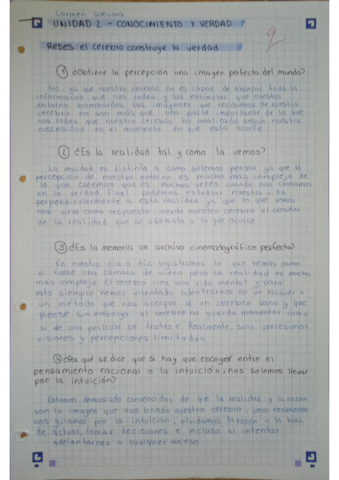 Carmen Guevara
UNIDAD 2 - CONOCIMIENTO Y VERDAD
9
Redes: el cerebro construye la verdad
① ¿Obtiene la percepción una imagen perfecta del mundo?
No, ya que nuestro cerebro no es capaz de alcanzar toda la
información que nos rodea y los estímulos que nuestro
entorno bombardea. Las imágenes que recibimos de nuestro
cerebro no son más que una parte importante de lo que
nos rodea que nuestro cerebro ha analizado según nuestra
necesidad en el momento en que esto ocurre.
② ¿Es la realidad tal y como la vemos?
La realidad es distinta a como solemos pensar ya que la
percepción de nuestro entorno es mucho más compleja de
lo que creemos que es. Muchas veces cuando nos centramos
en la verdad final podemos estudiar nuestra vida
perpendicularmente a esta realidad ya que lo que vemos
nos sirve como respuesta, siendo nuestro cerebro el creador
de la realidad que se adelanta a lo que ocurre.
③ ¿Es la memoria un archivo cinematográfico perfecto?
En nuestro día a día registramos lo que vemos como
si fuese una cámara de vídeo pero la realidad es mucho
más compleja. El cerebro crea una vida mental y para
esto siempre hemos intentado adentrarnos en un
un método que nos acerque a un cerebro sano y que
piense sin embargo el cerebro no guarda momentos como
si de una película se tratase. Realmente, solo percibimos
visiones y percepciones limitadas.
④ ¿Por qué se dice que si hay que escoger entre el
pensamiento racional o la intuición, nos solemos llevar
por la intuición?
Estamos demasiado convencidos de que la realidad y la razón
son la imagen que nos brinda nuestro cerebro, pero realmente,
nos guiamos por la intuición, olvidamos la razón a la hora
de actuar, tomar decisiones e incluso al intentar
adelantarnos a cualquier suceso.